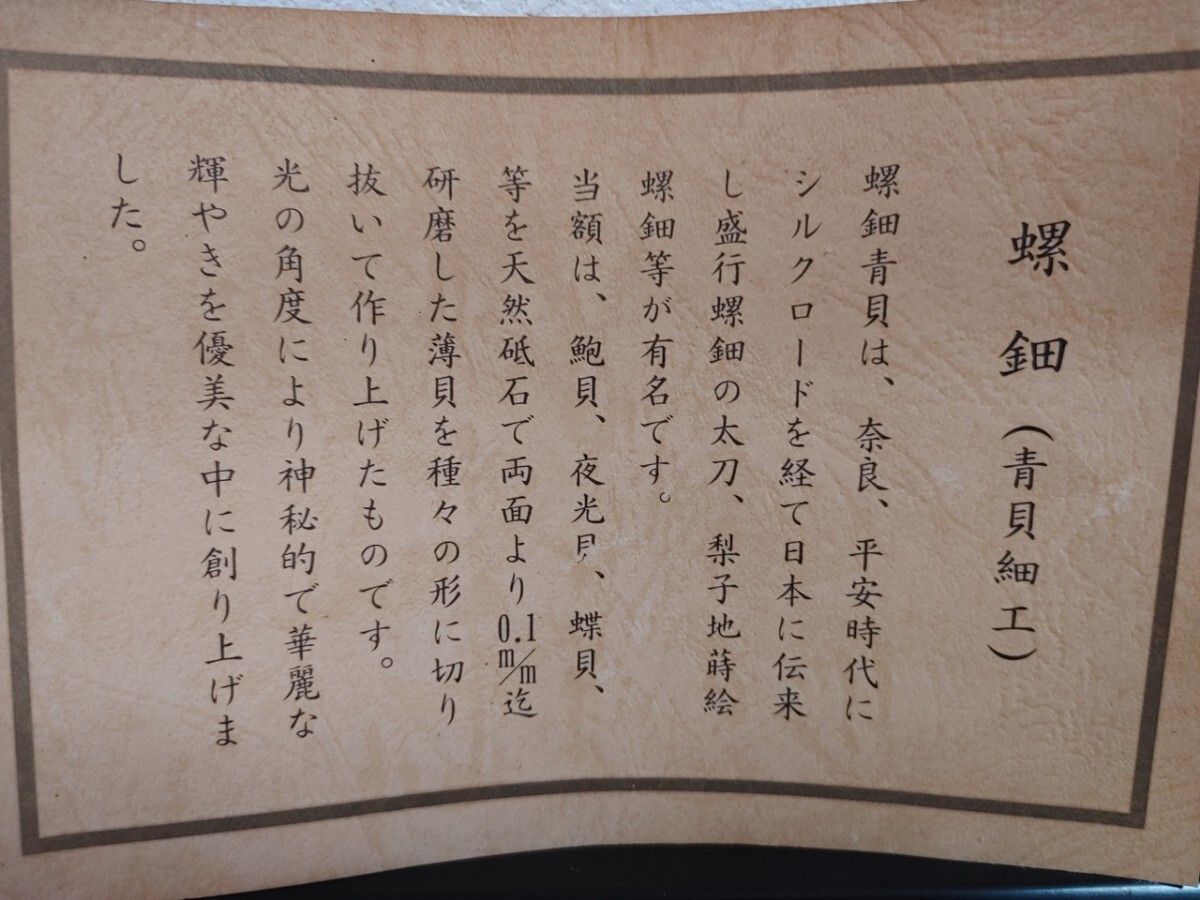 螺鈿(青貝細工)
螺鈿青貝は、奈良、平安時代に
シルクロードを経て日本に伝来
し盛行螺鈿の太刀、梨子地蒔絵
螺鈿等が有名です。
当額は、鮑貝、夜光貝、蝶貝、
等を天然砥石で両面より0.1m/m迄
研磨した薄貝を種々の形に切り
抜いて作り上げたものです。
光の角度により神秘的で華麗な
輝やきを優美な中に創り上げま
した。